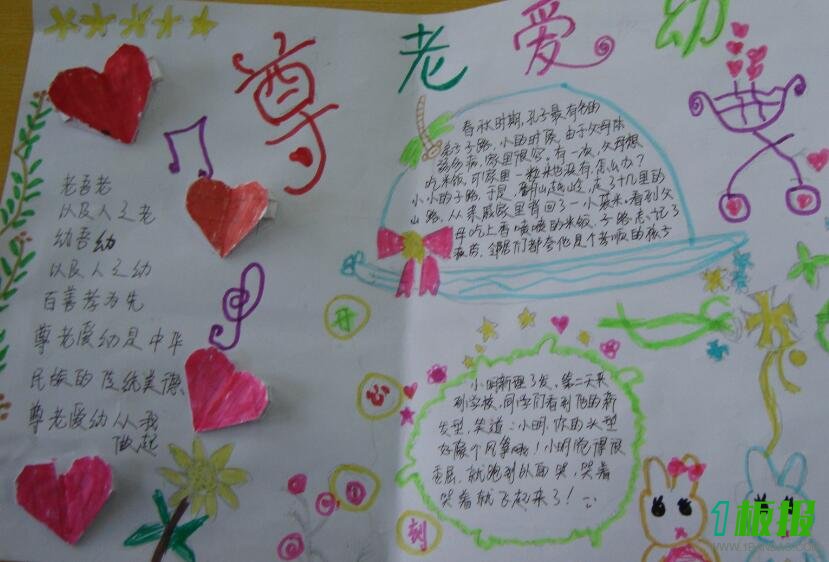 尊老爱幼
老吾老
以及人之老
幼吾幼
以及人之幼
百善孝为先
尊老爱幼是中华
民族的传统美德
尊老爱幼从我
做起
春秋时期,孔子最有名的
弟子子路,小的时候,由于父母体
弱多病,家里很穷。有一次,父母想
吃米饭,可家里一粒米也没有,怎么办?
小小的子路,于是,翻山越岭,走了十几里的
山路,从亲戚家里背回了一小袋米。看到父
母吃上香喷喷的米饭,子路忘记了
疲劳,邻居们都夸他是个孝顺的孩子
开
心
刻
小明新理了发,第二天来
到学校,同学们看到他的新
发型,笑道:小明,你的头型
好像个风筝哦!小明觉得很
委屈,就跑到外面哭,哭着
哭着就飞起来了!
1板报
WWW.1BANBAO.COM